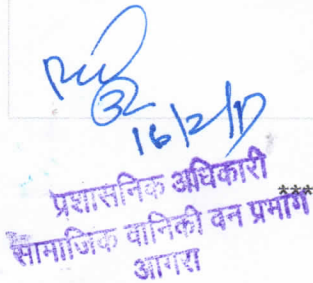 16/2/17
प्रशासनिक अधिकारी
***
सामाजिक वानिकी वन प्रभाग
आगरा